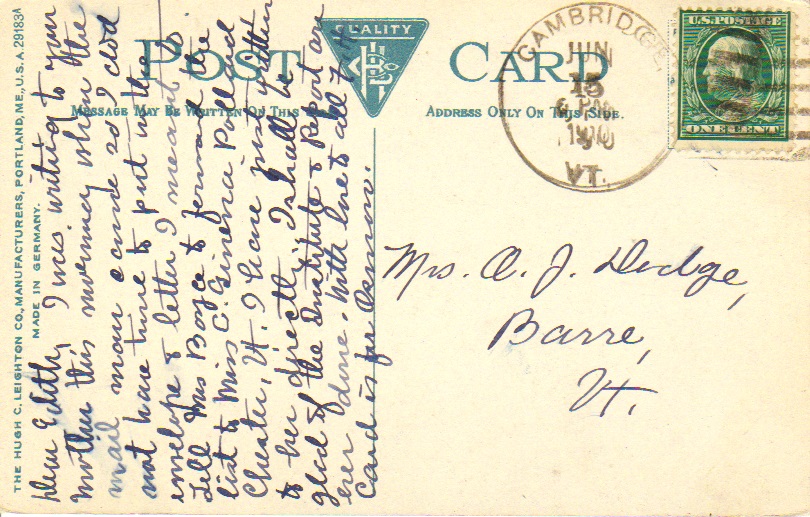 THE HUGH C. LEIGHTON CO., MANUFACTURERS, PORTLAND, ME., U.S.A. 29183A
MADE IN GERMANY.
POST CARD
QUALITY
MESSAGE MAY BE WRITTEN ON THIS
ADDRESS ONLY ON THIS SIDE.
CAMBRIDGE
JUN
15
6 PM
1910
VT.
U.S. POSTAGE
ONE CENT
Dear Edith, I was writing to your
Mother this morning when the
mail man came so I did
not have time to put in the
envelope & letter I meant to.
Tell Mrs Boyce to forward the
list to Miss C. Ginevra Pollard
Chester, Vt. I have just written
to her directly. I shall be
glad of the Institute & Report an
ever done. With love to all
Card is for
Mrs. A. J. Dodge,
Barre,
Vt.